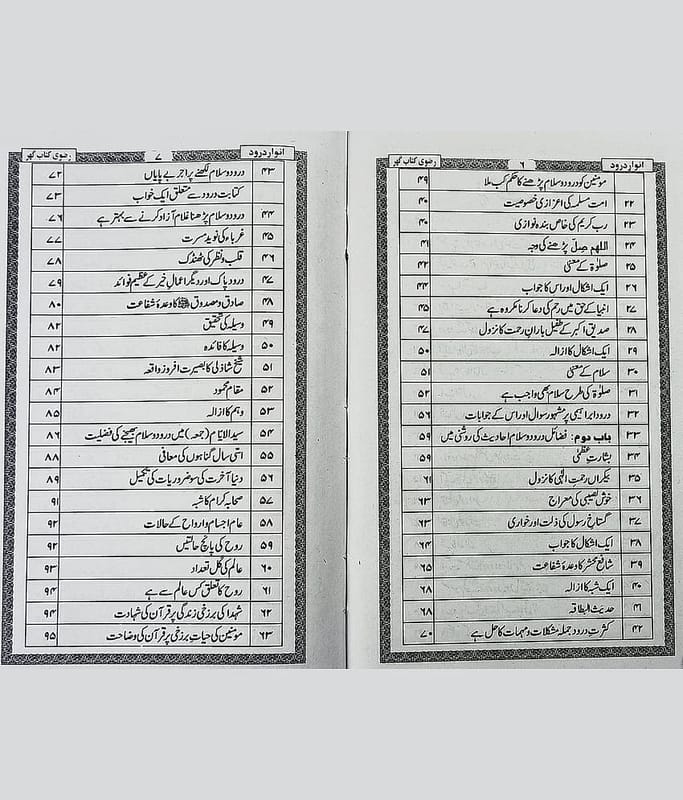 انوار درود ۶ رضوی کتاب گھر
مومنین کو درود و سلام پڑھنے کا حکم کب ملا ۴۹
۲۲ امت مسلمہ کی اعزازی خصوصیت ۴۰
۲۳ رب کریم کی خاص بندہ نوازی ۴۰
۲۴ اللھم صل پڑھنے کی وجہ ۴۱
۲۵ صلوٰۃ کے معنی ۴۲
۲۶ ایک اشکال اور اس کا جواب ۴۴
۲۷ انبیا کے حق میں رحم کی دعا کرنا مکروہ ہے ۴۵
۲۸ صدیق اکبر کے طفیل باران رحمت کا نزول ۴۷
۲۹ ایک اشکال کا ازالہ ۵۰
۳۰ سلام کے معنی ۵۱
۳۱ صلوٰۃ کی طرح سلام بھی واجب ہے ۵۲
۳۲ درود ابراہیمی پر مشہور سوال اور اس کے جوابات ۵۶
۳۳ باب دوم: فضائل درود و سلام احادیث کی روشنی میں ۵۹
۳۴ بشارت عظمیٰ ۵۹
۳۵ بیکراں رحمت الٰہی کا نزول ۶۱
۳۶ خوش نصیبی کی معراج ۶۳
۳۷ گستاخ رسول کی ذلت اور خواری ۶۳
۳۸ ایک اشکال کا جواب ۶۴
۳۹ شافع محشر کا وعدۂ شفاعت ۶۵
۴۰ ایک شبہ کا ازالہ ۶۸
۴۱ حدیث البطاقہ ۶۸
۴۲ کثرت درود جملہ مشکلات و مہمات کا حل ہے ۷۰
انوار درود ۷ رضوی کتاب گھر
۴۳ درود و سلام لکھنے پر اجر بے پایاں ۷۲
کتابت درود سے متعلق ایک خواب ۷۳
۴۴ درود و سلام پڑھنا غلام آزاد کرنے سے بہتر ہے ۷۶
۴۵ غرباء کی نوید مسرت ۷۷
۴۶ قلب و نظر کی ٹھنڈک ۷۸
۴۷ درود پاک اور دیگر اعمال خیر کے عظیم فوائد ۷۹
۴۸ صادق و مصدوق ﷺ کا وعدۂ شفاعت ۸۰
۴۹ وسیلہ کی تحقیق ۸۲
۵۰ وسیلہ کا فائدہ ۸۲
۵۱ شیخ شاذلی کا بصیرت افروز واقعہ ۸۳
۵۲ مقام محمود ۸۴
۵۳ وہم کا ازالہ ۸۵
۵۴ سید الایام (جمعہ) میں درود و سلام بھیجنے کی فضیلت ۸۶
۵۵ اسی سال گناہوں کی معافی ۸۸
۵۶ دنیا آخرت کی سو ضروریات کی تکمیل ۸۹
۵۷ صحابہ کرام کا شبہ ۹۱
۵۸ عام اجسام و ارواح کے حالات ۹۲
۵۹ روح کی پانچ حالتیں ۹۲
۶۰ عالم کی کل تعداد ۹۳
۶۱ روح کا تعلق کس عالم سے ہے ۹۴
۶۲ شہدا کی برزخی زندگی پر قرآن کی شہادت ۹۴
۶۳ مومنین کی حیات برزخی پر قرآن کی وضاحت ۹۵